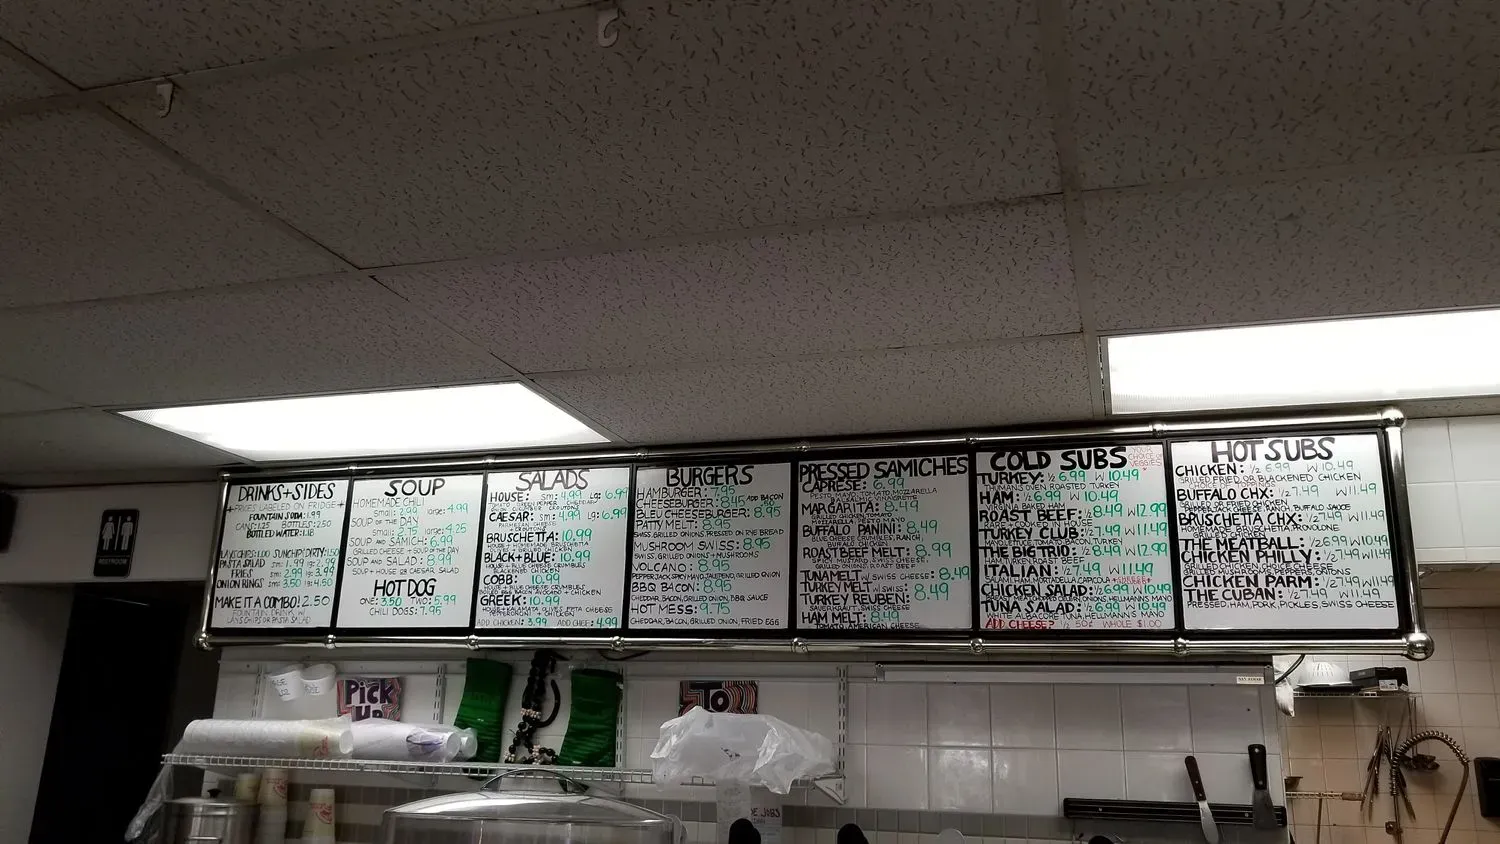 DRINKS+SIDES
*PRICES LABELED ON FRIDGE*
FOUNTAIN SODA: 1.99
CANS: 1.25 BOTTLES: 2.50
BOTTLED WATER: 1.18
LAYS CHIPS: 1.00 SUNCHIP/DIRTY: 1.50
PASTA SALAD sm: 1.99 lg: 2.99
FRIES sm: 2.99 lg: 3.99
ONION RINGS sm: 3.50 lg: 4.50
MAKE IT A COMBO! 2.50
FOUNTAIN DRINK W/
LAYS CHIPS or PASTA SALAD
SOUP
HOMEMADE CHILI
small: 2.99 large: 4.99
SOUP of the DAY
large: 4.25
SOUP and SAMICH: 6.99
GRILLED CHEESE + SOUP of the DAY
SOUP and SALAD: 8.99
SOUP + HOUSE OR CAESAR SALAD
HOT DOG
ONE: 3.50 TWO: 5.99
CHILI DOGS: 7.95
SALADS
HOUSE: sm: 4.99 lg: 6.99
CAESAR: sm: 4.99 lg: 6.99
PARMESAN CHEESE
CROUTONS
BRUSCHETTA: 10.99
BLACK+BLUE: 10.99
BLACKENED CHICKEN
COBB: 10.99
GREEK: 10.99
ADD CHICKEN: 3.99 ADD CHEESE: 4.99
BURGERS
HAMBURGER: 7.95
CHEESEBURGER: 8.45 ADD BACON
BLEU CHEESEBURGER: 8.95
PATTY MELT: 8.95
SWISS, GRILLED ONIONS, PRESSED ON RYE BREAD
MUSHROOM SWISS: 8.95
SWISS, GRILLED ONIONS + MUSHROOMS
VOLCANO: 8.95
PEPPERJACK, SPICY MAYO, JALAPENO, GRILLED ONION
BBQ BACON: 8.95
CHEDDAR, BACON, GRILLED ONION, BBQ SAUCE
HOT MESS: 9.75
CHEDDAR, BACON, GRILLED ONION, FRIED EGG
PRESSED SAMICHES
CAPRESE: 6.99
PESTO, MAYO, TOMATO, MOZZARELLA
MARGARITA: 8.49
MOZZARELLA, PESTO MAYO
BUFFALO PANINI: 8.49
BLUE CHEESE CRUMBLES, RANCH,
BUFFALO CHICKEN
ROAST BEEF MELT: 8.99
TUNA MELT W/ SWISS CHEESE: 8.49
TURKEY MELT W/ SWISS:
TURKEY REUBEN: 8.49
SAUERKRAUT, SWISS CHEESE
HAM MELT: 8.49
TOMATO, AMERICAN CHEESE
COLD SUBS YOUR CHOICE OF VEGGIES
TURKEY: 1/2 6.99 W 10.49
THUMANNS OVEN ROASTED TURKEY
HAM: 1/2 6.99 W 10.49
VIRGINIA BAKED HAM
ROAST BEEF: 1/2 8.49 W 12.99
RARE + COOKED IN HOUSE
TURKEY CLUB: 1/2 7.49 W 11.49
MAYO, LETTUCE, TOMATO, BACON, TURKEY
THE BIG TRIO: 1/2 8.49 W 12.99
HAM, TURKEY, ROAST BEEF
ITALIAN: 1/2 7.49 W 11.49
SALAMI, HAM, MORTADELLA, CAPICOLA
CHICKEN SALAD: 1/2 6.99 W 10.49
TUNA SALAD: 1/2 6.99 W 10.49
ALBACORE TUNA, HELLMANN'S MAYO
ADD CHEESE? 1/2 50¢ WHOLE $1.00
HOT SUBS
CHICKEN: 1/2 6.99 W 10.49
GRILLED, FRIED, OR BLACKENED CHICKEN
CHOICE OF VEGGIES
BUFFALO CHX: 1/2 7.49 W 11.49
GRILLED OR FRIED CHICKEN,
PEPPER JACK CHEESE, RANCH, BUFFALO SAUCE
BRUSCHETTA CHX: 1/2 7.49 W 11.49
HOMEMADE BRUSCHETTA, PROVOLONE,
GRILLED CHICKEN
THE MEATBALL: 1/2 6.99 W 10.49
CHICKEN PHILLY: 1/2 7.49 W 11.49
GRILLED MUSHROOMS, PEPPERS, ONIONS
CHICKEN PARM: 1/2 7.49 W 11.49
THE CUBAN: 1/2 7.49 W 11.49
PRESSED, HAM, PORK, PICKLES, SWISS CHEESE
RESTROOM
Pick
Up
To